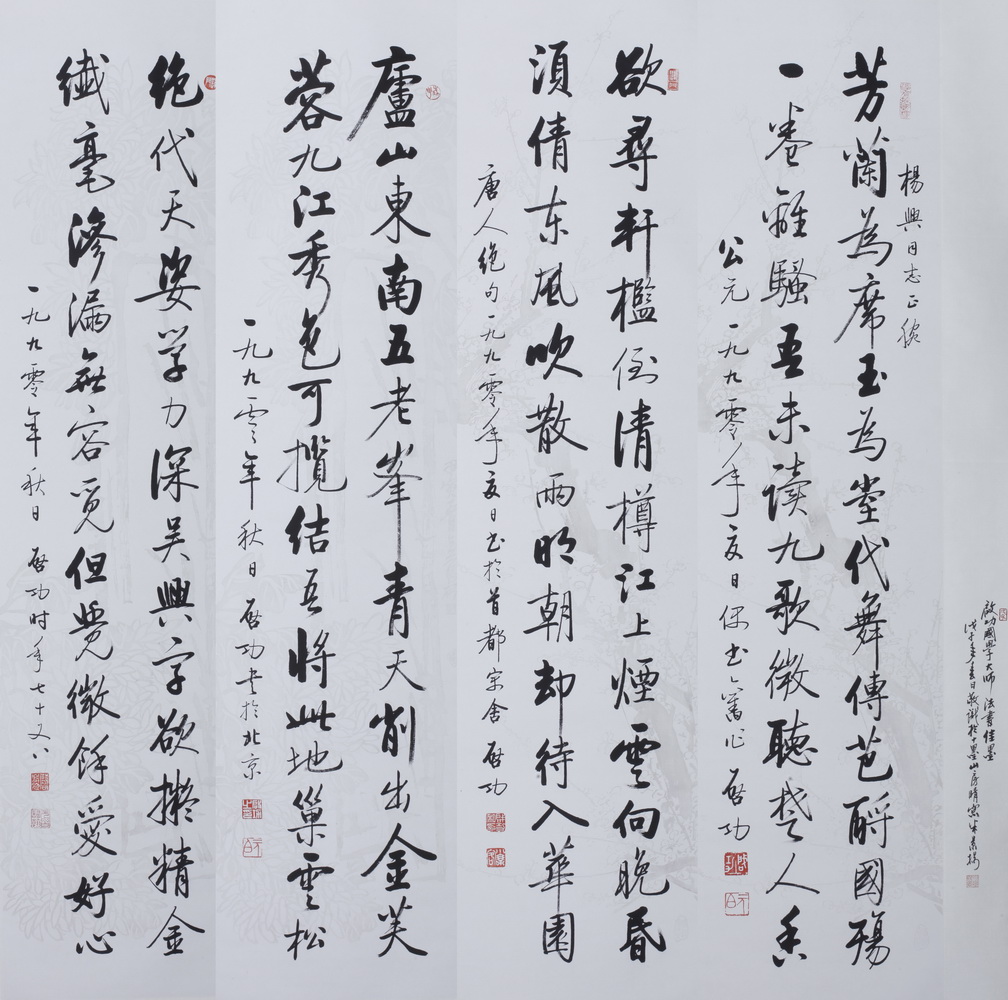 楊興同志正腕
芳蘭為席玉為堂代舞傳芭酹國殤
一卷離騷吾未讀九歌微聽楚人香
公元一九九零年夏日偶書舊作 啟功
欲尋軒檻倒清樽江上煙雲向晚昏
須倩东風吹散雨明朝却待入華園
唐人绝句一九九零年夏日书於首都寓舍 啟功
廬山東南五老峯青天削出金芙
蓉九江秀色可攬结吾將此地巢雲松
一九九零年秋日 啟功书於北京
绝代天姿学力深吴興字欲擬精金
纖毫滲漏無容覓但覺微餘愛好心
一九九零年秋日 啟功时年七十又八
啟功國學大师 法書佳墨
戊子冬吉日敬識於墨山房晴窗